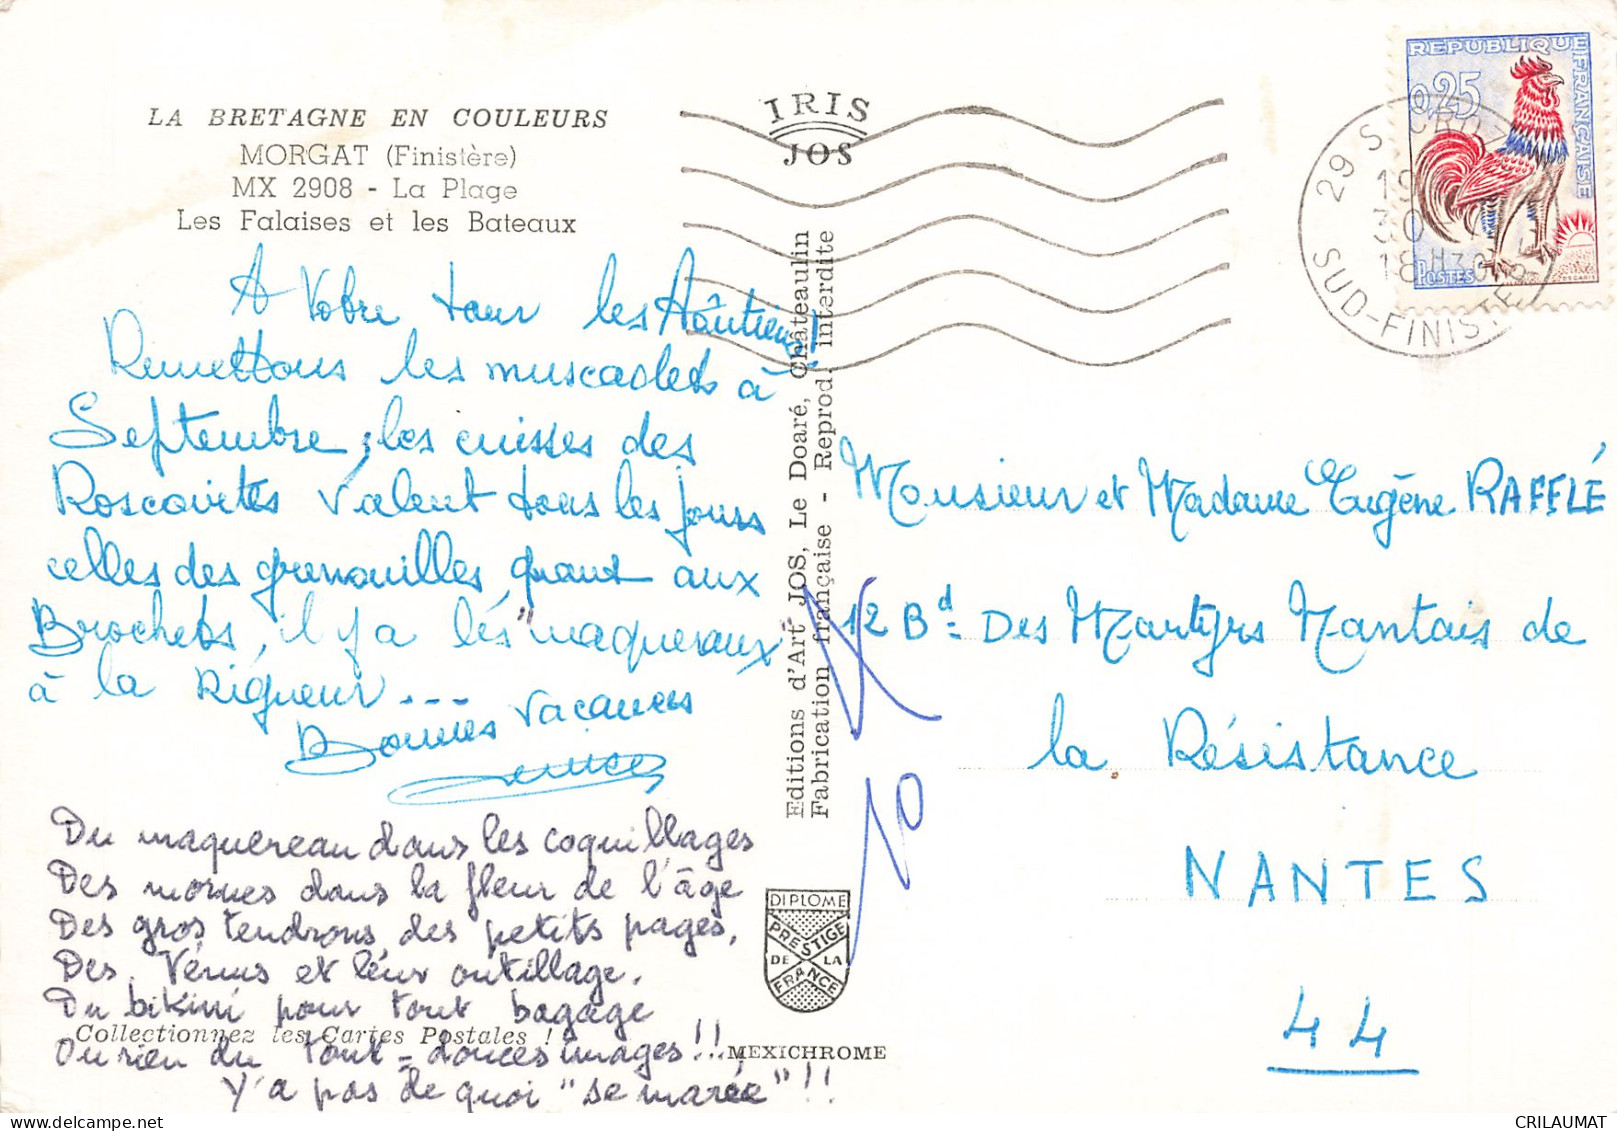 LA BRETAGNE EN COULEURS
MORGAT (Finistère)
MX 2908 - La Plage
Les Falaises et les Bateaux
IRIS
JOS
REPUBLIQUE FRANÇAISE
0,25
POSTES
29 S CRO
19
30
18 H30
SUD-FINISTE
A Votre tour les Aôutiens!
Remettons les muscadets à
Septembre, les cuisses des
Roscovites valent tous les jours
celles des grenouilles quant aux
Brochets, il y a les "maquereaux"
à la Rigueur...
Bonnes Vacances
Du maquereau dans les coquillages
Des mornes dans la fleur de l'âge
Des gros tendrons des petits pages,
Des Vénus et leur outillage,
Du bikini pour tout bagage
Ou rien du tout - douces images!!
Y'a pas de quoi "se marée"!!
Collectionnez les Cartes Postales !
Editions d'Art JOS, Le Doaré, Châteaulin
Fabrication française - Reprod. interdite
DIPLOME
PRESTIGE
DE LA
FRANCE
MEXICHROME
Monsieur et Madame Eugène RAFFLÉ
12 Bd Des Martyrs Nantais de
la Résistance
NANTES
44
CRILAUMAT